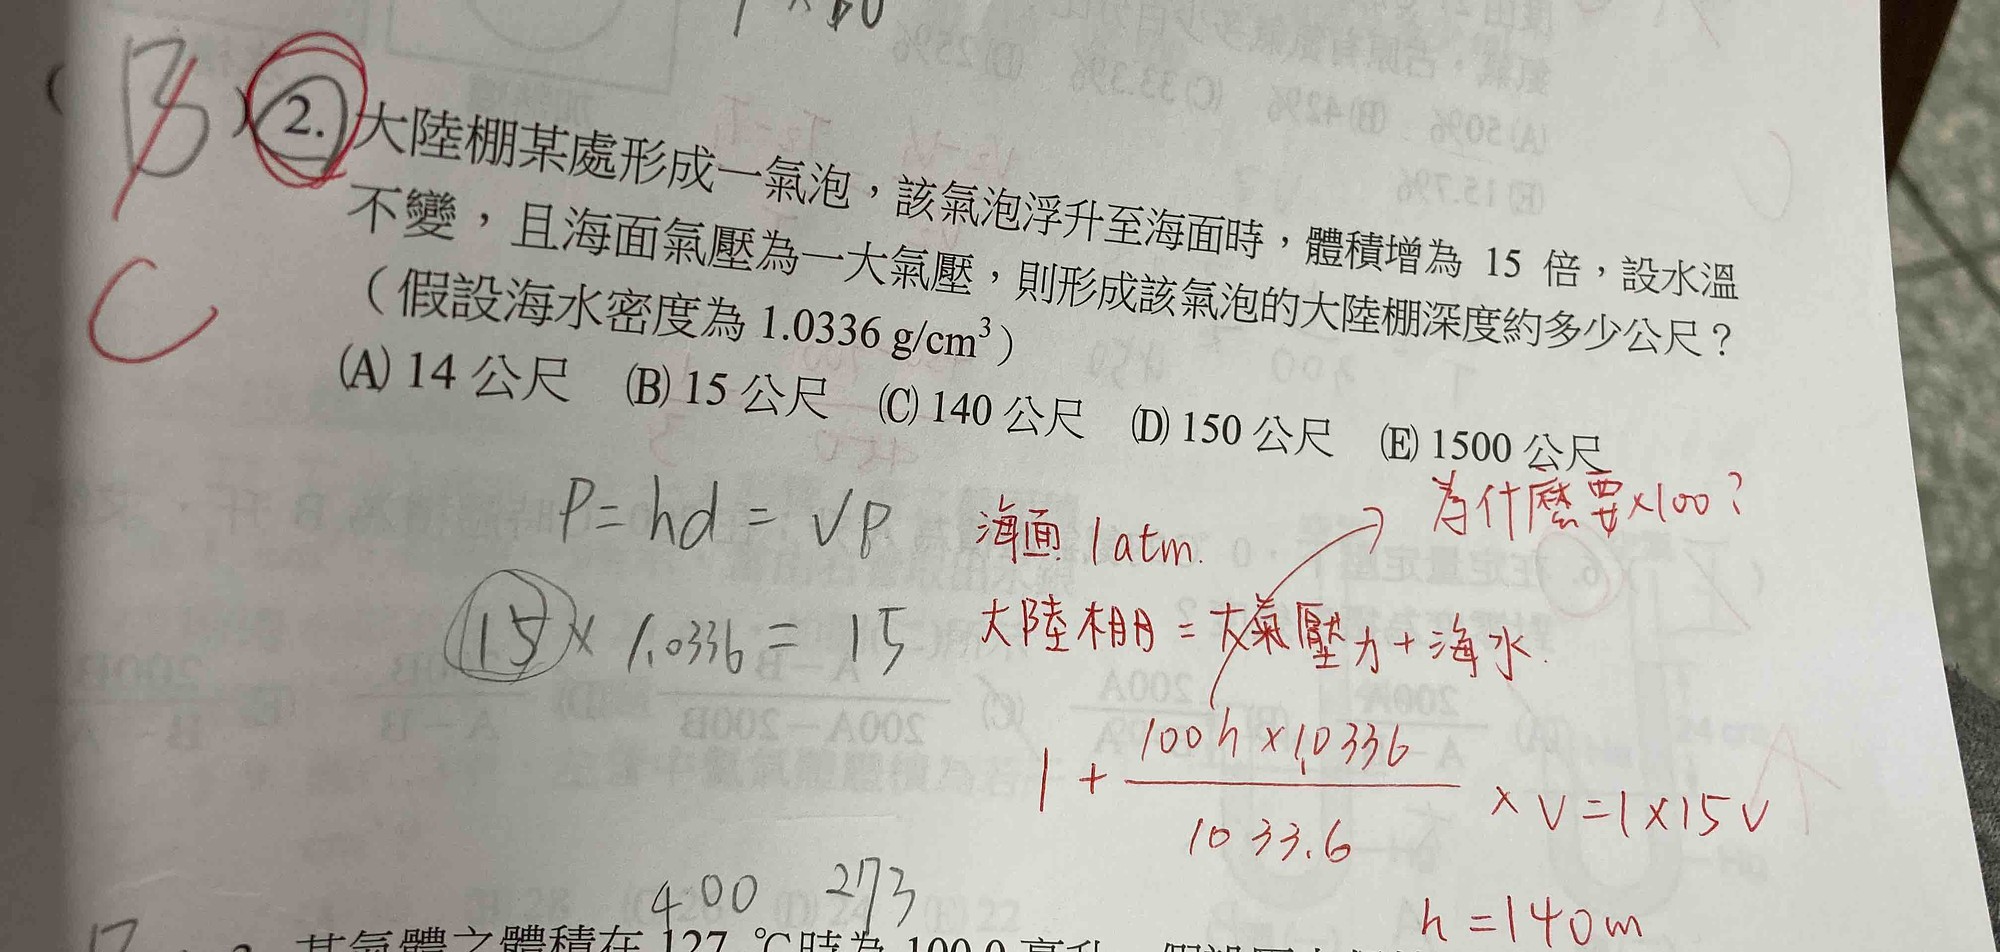 B
C
2. 大陸棚某處形成一氣泡，該氣泡浮升至海面時，體積增為 15 倍，設水溫
不變，且海面氣壓為一大氣壓，則形成該氣泡的大陸棚深度約多少公尺？
（假設海水密度為 1.0336 g/cm³）
(A) 14 公尺 (B) 15 公尺 (C) 140 公尺 (D) 150 公尺 (E) 1500 公尺
為什麼要×100？
P = hd = VP 海面 1 atm.
15 × 1.0336 = 15 大陸棚 = 大氣壓力 + 海水.
1 + 100h × 1.0336 / 1033.6 × V = 1 × 15 V
h = 140m
400 273